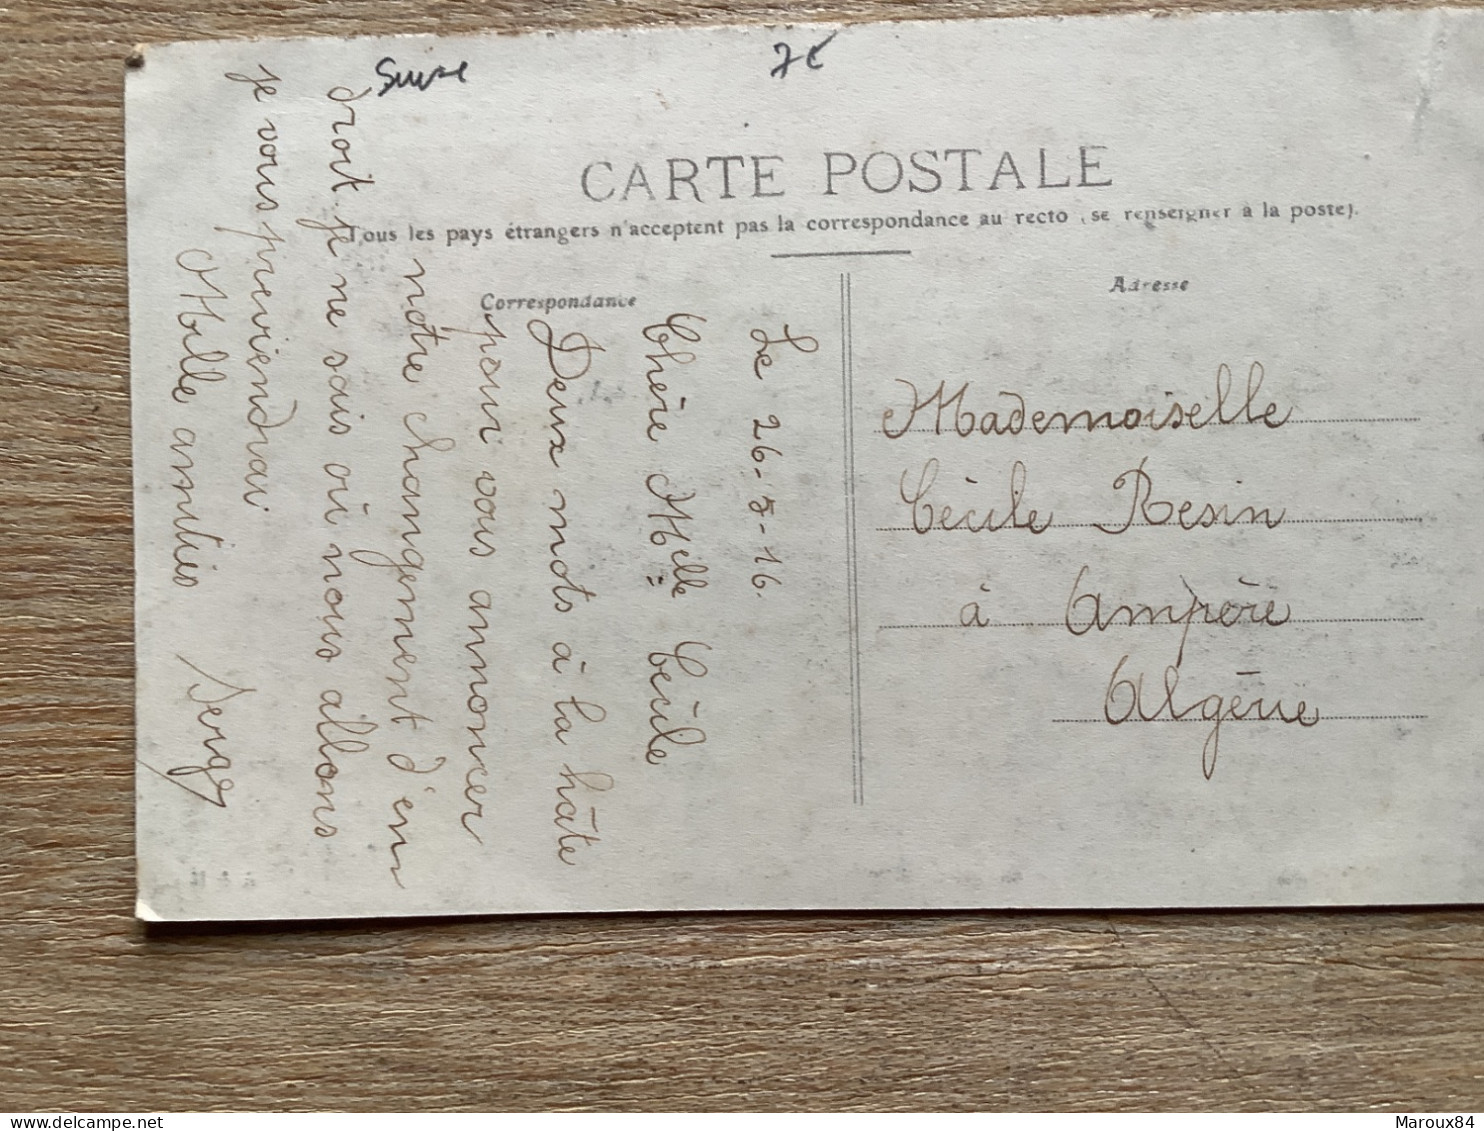 7€
CARTE POSTALE
Tous les pays étrangers n'acceptent pas la correspondance au recto (se renseigner à la poste).
Correspondance
Adresse
Le 26-5-16.
Chère Melle Cécile
Deux mots à la hâte
pour vous annoncer
notre changement d'en
droit je ne sais où nous allons
je vous previendrai
Mille amitiés Serge
Mademoiselle
Cécile Resin
à Ampère
Algérie
Maroux84